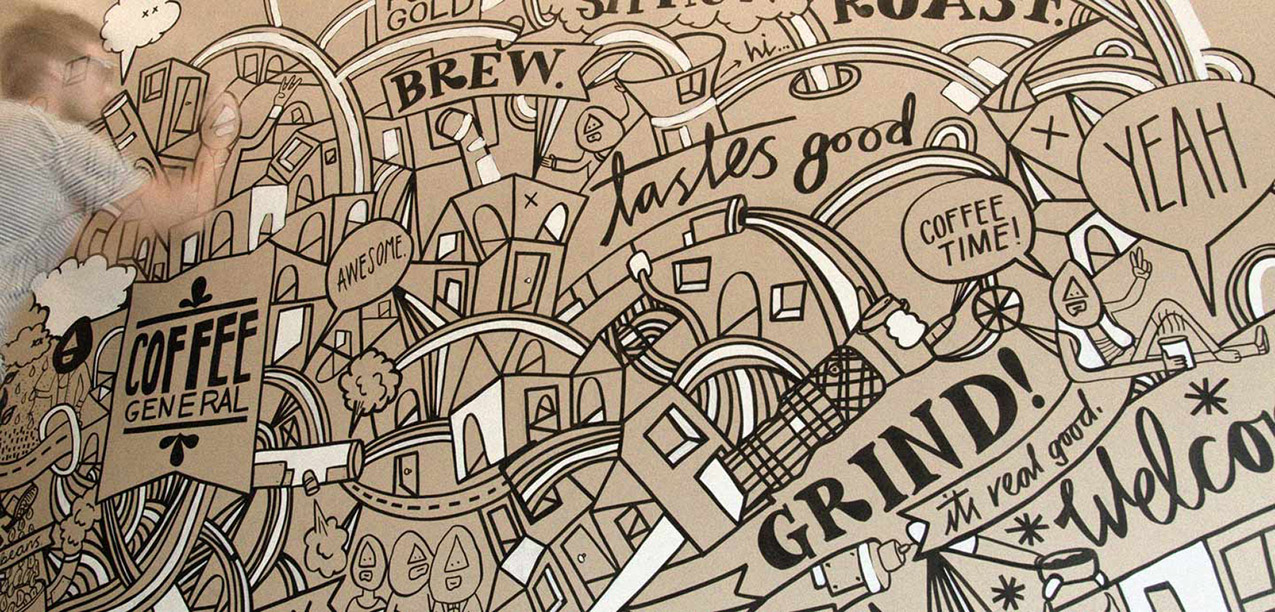 GOLD
ROAST.
BREW.
hi...
tastes good
YEAH
COFFEE
TIME!
AWESOME.
COFFEE
GENERAL
GRIND!
it's real good.
Welco
beans